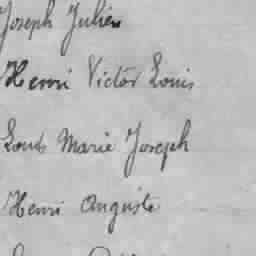 Joseph Julien
Henri Victor Louis
Louis Marie Joseph
Henri Auguste